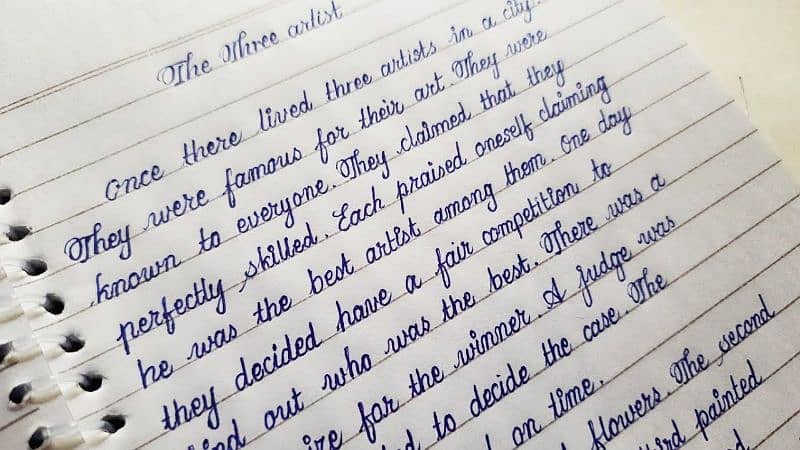 The Three artist
Once there lived three artists in a city.
They were famous for their art. They were
known to everyone. They claimed that they
perfectly skilled. Each praised oneself claiming
he was the best artist among them. One day
they decided have a fair competition to
out who was the best. There was a
for the winner. A judge was
to decide the case. The
on time.
flowers. The second
painted